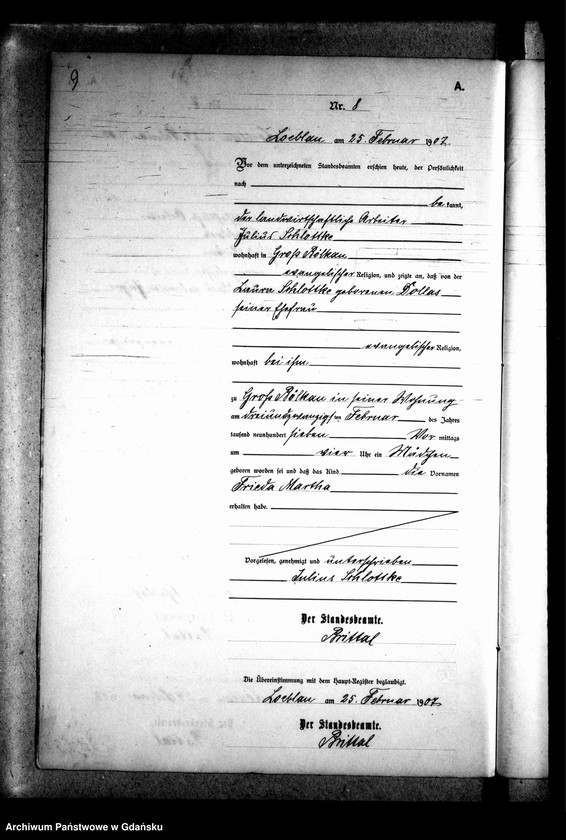 9
A.
Nr. 8
Loeblau am 25. Februar 1907.
Vor dem unterzeichneten Standesbeamten erschien heute, der Persönlichkeit
nach
be kannt,
der landwirtschaftliche Arbeiter
Julius Schlottke
wohnhaft in Groß Rölkau
evangelischer Religion, und zeigte an, daß von der
Laura Schlottke geborenen Dollas
seiner Ehefrau
evangelischer Religion,
wohnhaft bei ihm
zu Groß Rölkau in seiner Wohnung
am dreiundzwanzigsten Februar des Jahres
tausend neunhundert sieben Vor mittags
um vier Uhr ein Mädchen
geboren worden sei und daß das Kind die Vornamen
Frieda Martha
erhalten habe.
Vorgelesen, genehmigt und unterschrieben
Julius Schlottke
Der Standesbeamte.
Brittal
Die Übereinstimmung mit dem Haupt-Register beglaubigt.
Loeblau am 25. Februar 1907.
Der Standesbeamte.
Brittal
Archiwum Państwowe w Gdańsku